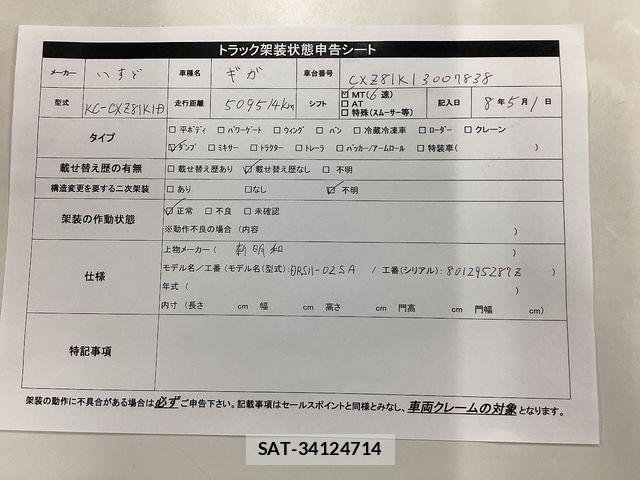 トラック架装状態申告シート
メーカー いすゞ 車種名 ギガ 車台番号 CXZ81K13007838
型式 KC-CXZ81K1D 走行距離 509514km シフト ☑MT(6速) □AT □特殊(スムーサー等) 記入日 8年5月1日
タイプ □平ボディ □パワーゲート □ウィング □バン □冷蔵冷凍車 □ローダー □クレーン
☑ダンプ □ミキサー □トラクター □トレーラ □パッカー/アームロール □特装車( )
載せ替え歴の有無 □載せ替え歴あり ☑載せ替え歴なし □不明
構造変更を要する二次架装 □あり □なし ☑不明
架装の作動状態 ☑正常 □不良 □未確認
※動作不良の場合 (内容 )
仕様 上物メーカー( 新明和 )
モデル名/工番(モデル名(型式): DR511-02SA /工番(シリアル): 801295287Z )
年式( )
内寸(長さ cm 幅 cm 高さ cm 門高 cm 門幅 cm)
特記事項
架装の動作に不具合がある場合は必ずご申告下さい。記載事項はセールスポイントと同様とみなし、車両クレームの対象となります。
SAT-34124714